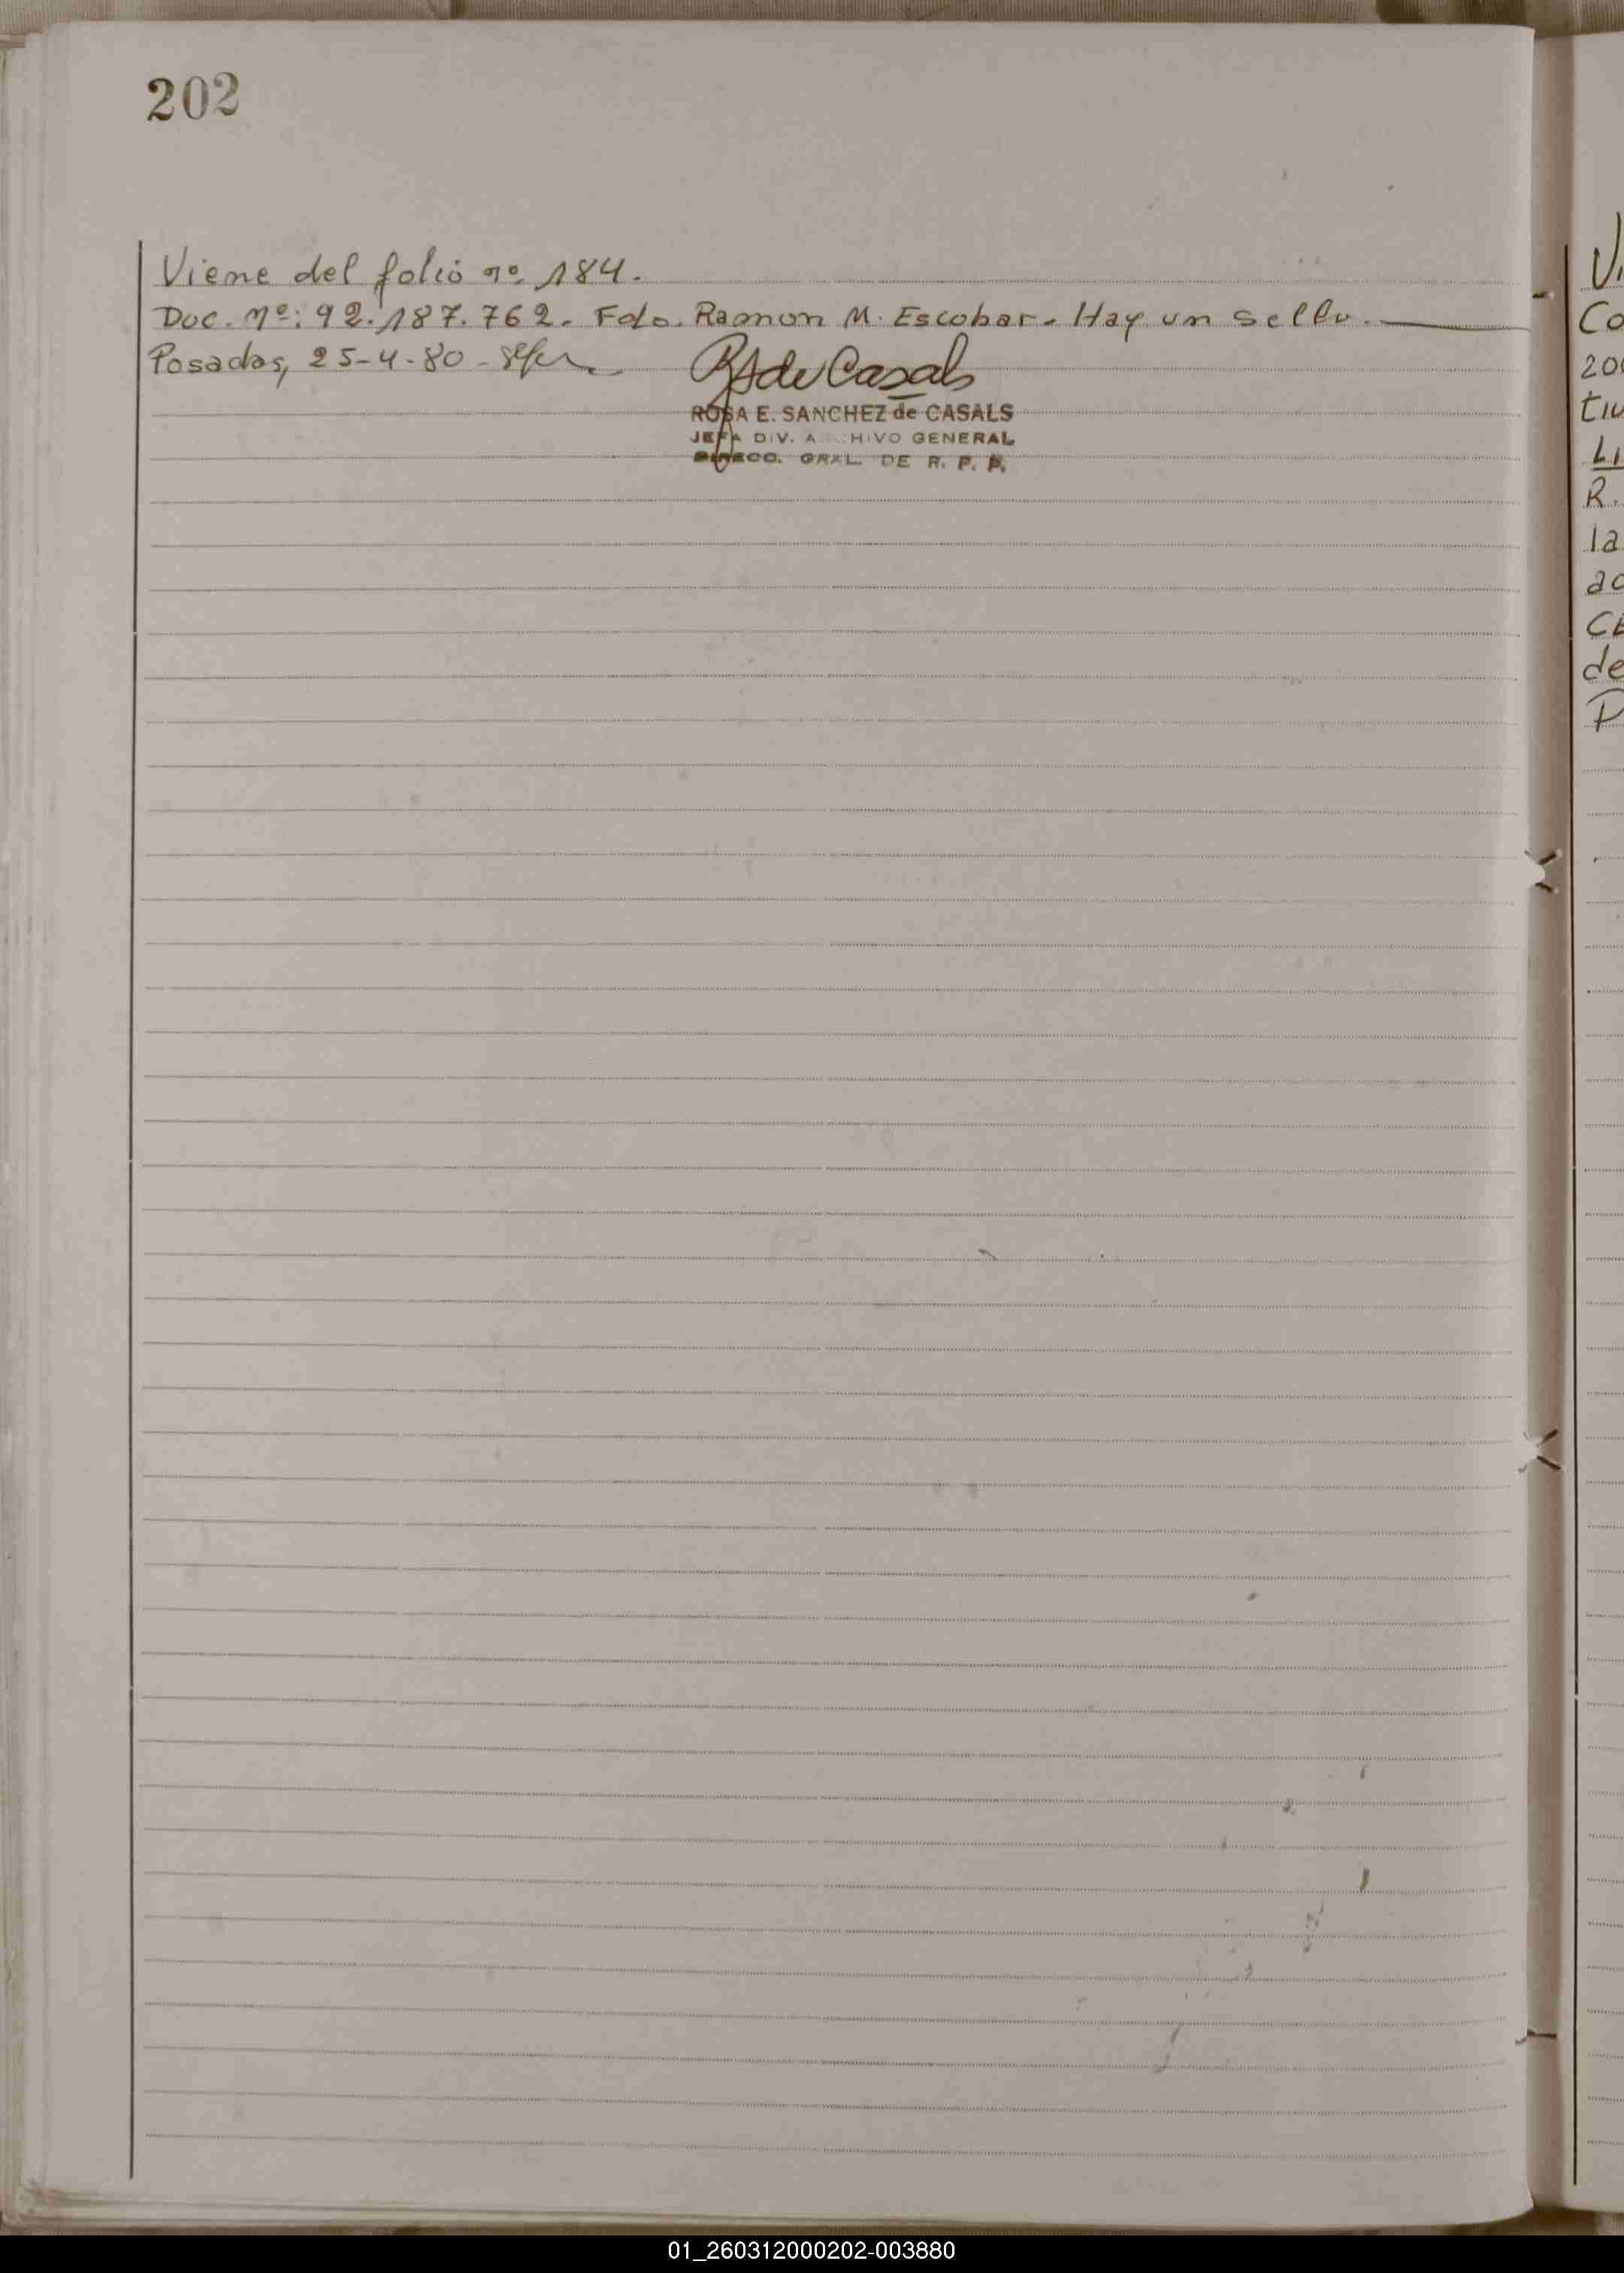 202
Viene del folio nº 184.
Doc. Nº: 92.187.762. Fdo. Ramon M. Escobar. Hay un sello.
Posadas, 25-4-80
RS de Casals
ROSA E. SANCHEZ de CASALS
JEFA DIV. ARCHIVO GENERAL
DIRECC. GRAL. DE R. P. P.
Co
200
Li
R.
la
de
01_260312000202-003880